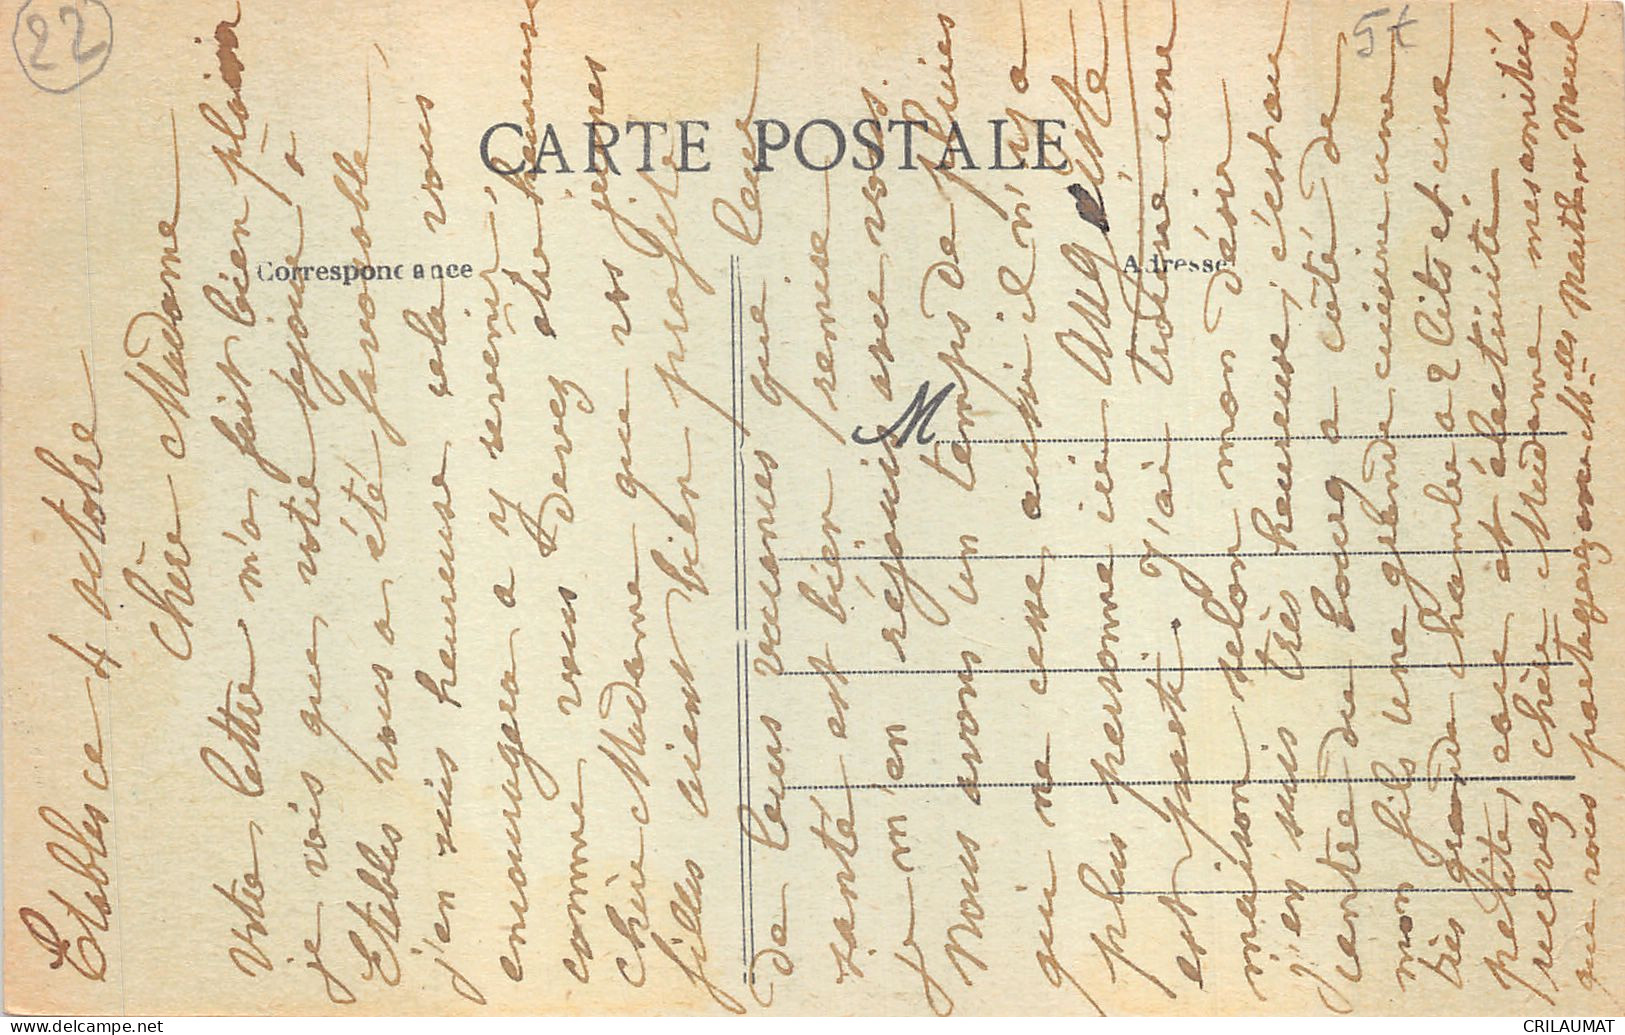 22
5+
CARTE POSTALE
Correspondance
Adresse
M
Etables ce 4 octobre
Chère Madame
Votre lettre m'a fait bien plaisir
je vois que votre séjour à
Etables vous a été favorable
j'en suis heureuse cela vous
encouragera à y revenir,
comme vous devez être heureuse
chère Madame que vos jeunes
filles aient bien profité
de leurs vacances que leur
santé est bien remise
je m'en réjouis avec vous.
Nous avons un temps de pluies
qui ne cesse aussi il n'y a
plus personne ici Auguste
est parti. J'ai trouvé une
maison selon mon désir
j'en suis très heureuse, c'est au
centre du bourg a côté de
mon fils une grande cuisine une
très grande chambre a 2 lits et une
petite, eau et électricité
recevez chère Madame mes amitiés
que vous partagerez avec Mesdemoiselles
CRILAUMAT